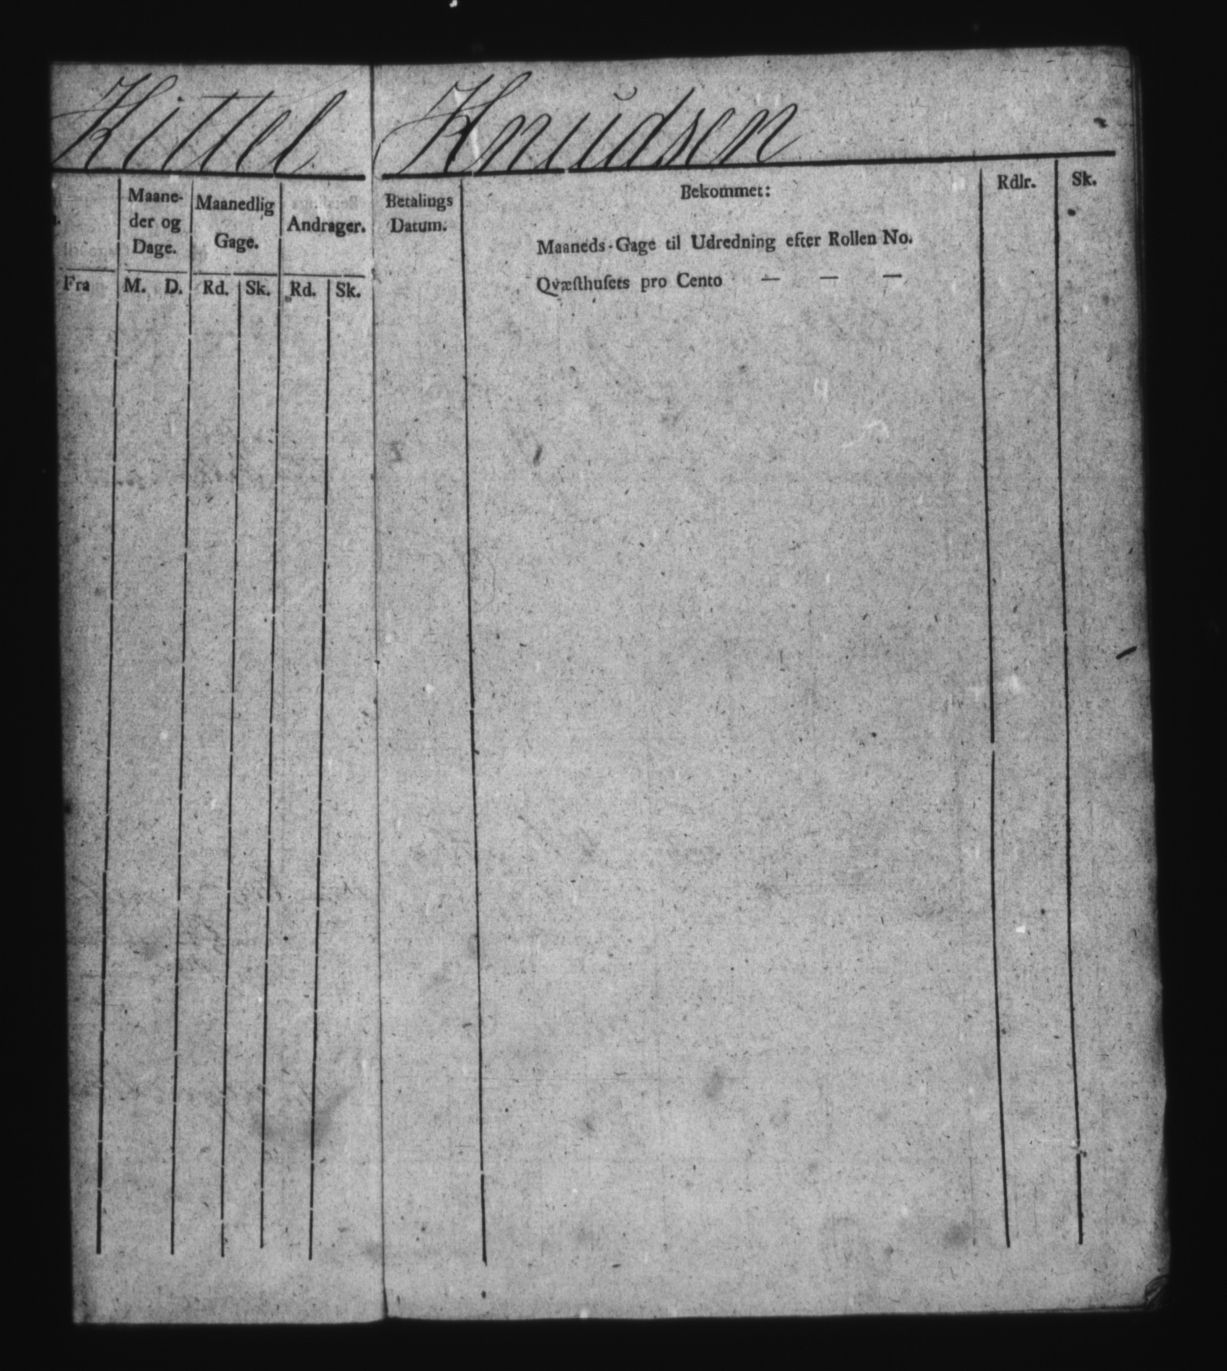 Kittel Knudsen
Maane-
der og
Dage.
Maanedlig
Gage.
Andrager.
Fra
M. D. Rd. Sk. Rd. Sk.
Betalings
Datum.
Bekommet:
Rdlr.
Sk.
Maaneds-Gage til Udredning efter Rollen No.
Qvæſthuſets pro Cento — — —